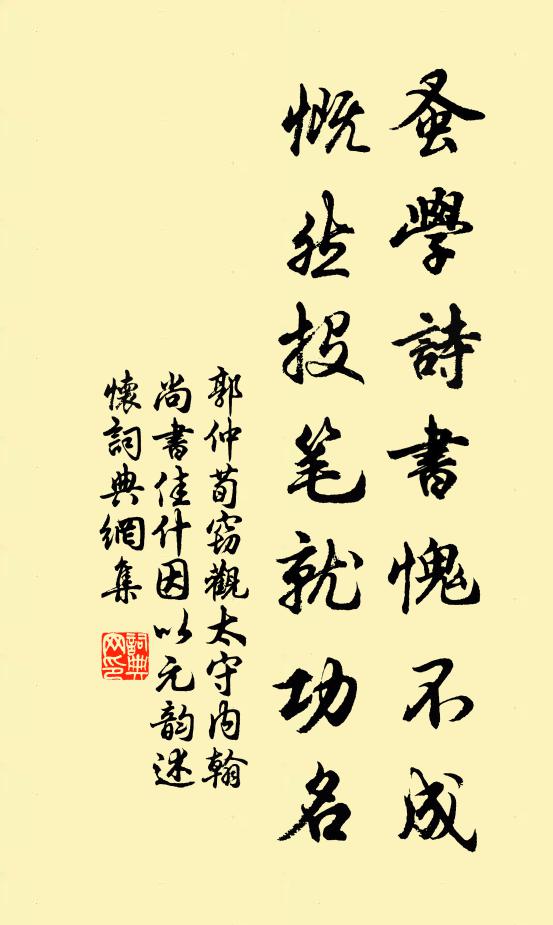 蚤學詩書愧不成
慨然投笔就功名
郭仲荀窃觀太守内翰
尚書佳什因以元韵述
懷詞典網集
詞典
网印